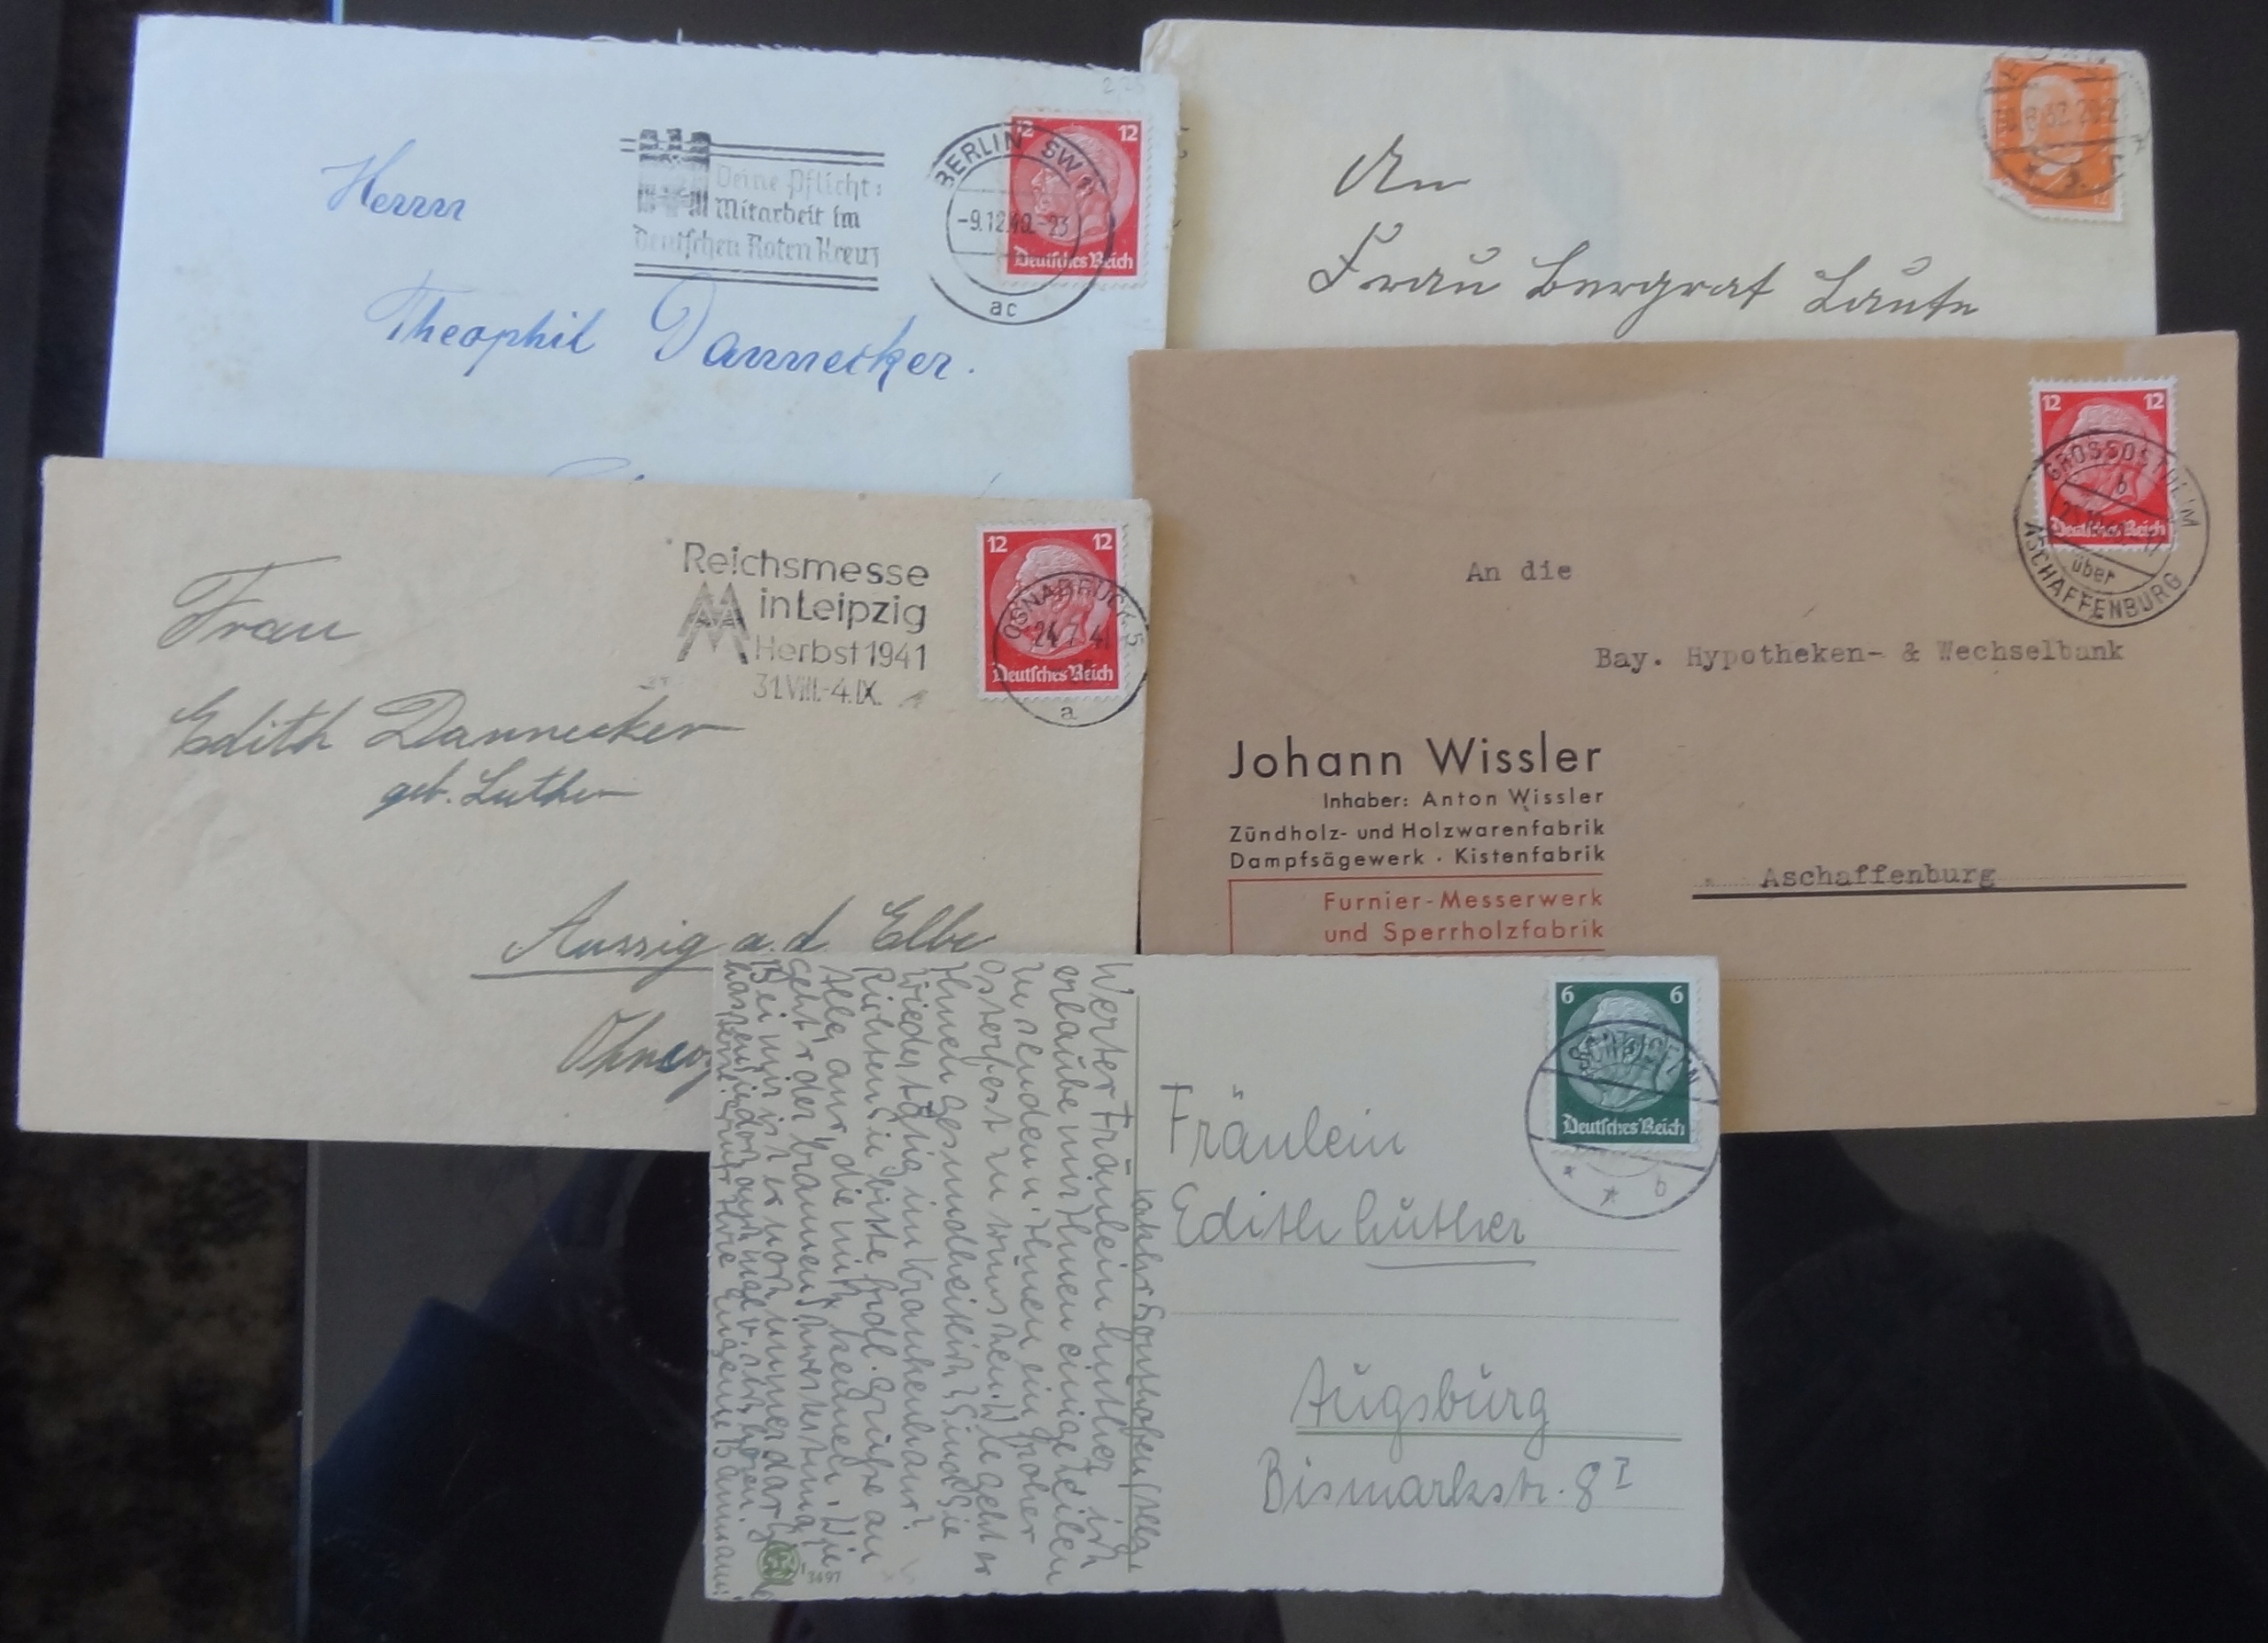 Herrn
Theophil Dannecker.
Deine Pflicht:
Mitarbeit im
Deutschen Roten Kreuz
BERLIN SW 11
-9.12.40.-23
ac
12 12
Deutsches Reich
An
Frau Bergrat Laute
12
Frau
Edith Dannecker
geb. Luther
Aussig a. d Elbe
Reichsmesse
in Leipzig
Herbst 1941
31.VIII.-4.IX.
OSNABRÜCK 5
24.7.41
a
12 12
Deutsches Reich
12 12
Deutsches Reich
GROSSOSTHEIM
b
über
ASCHAFFENBURG
An die
Bay. Hypotheken- & Wechselbank
Aschaffenburg
Johann Wissler
Inhaber: Anton Wissler
Zündholz- und Holzwarenfabrik
Dampfsägewerk · Kistenfabrik
Furnier-Messerwerk
und Sperrholzfabrik
6 6
Deutsches Reich
b
Fräulein
Edith Luther
Augsburg
Bismarkstr. 8 I
Werter Fräulein Luther, ich
erlaube mir Ihnen einige Zeilen
zu senden u. Ihnen ein froher
Osterfest zu wünschen. Wie geht er
Ihnen gesundheitlich? Sind Sie
wieder tätig im Krankenhaus?
Richten Sie bitte frdl. Grüße an
Alle aus, die mich kennen. Wie
geht's der braunen Schwester
Bei mir ist er noch immer
3497